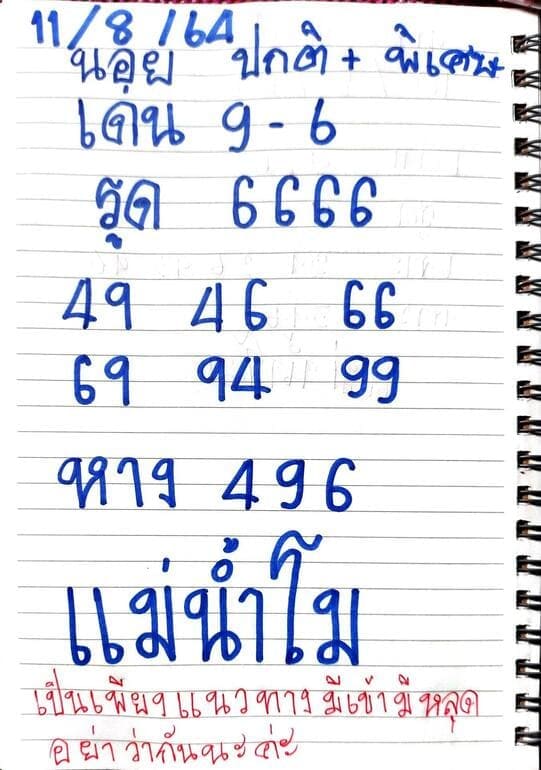 11/8/64
นอย ปกติ + พิเศษ
เด่น 9-6
รูด 6666
49 46 66
69 94 99
หาง 496
แม่น้ำโม
เป็นเพียงแนวทาง มีเข้ามีหลุด
อย่าว่ากันนะค่ะ